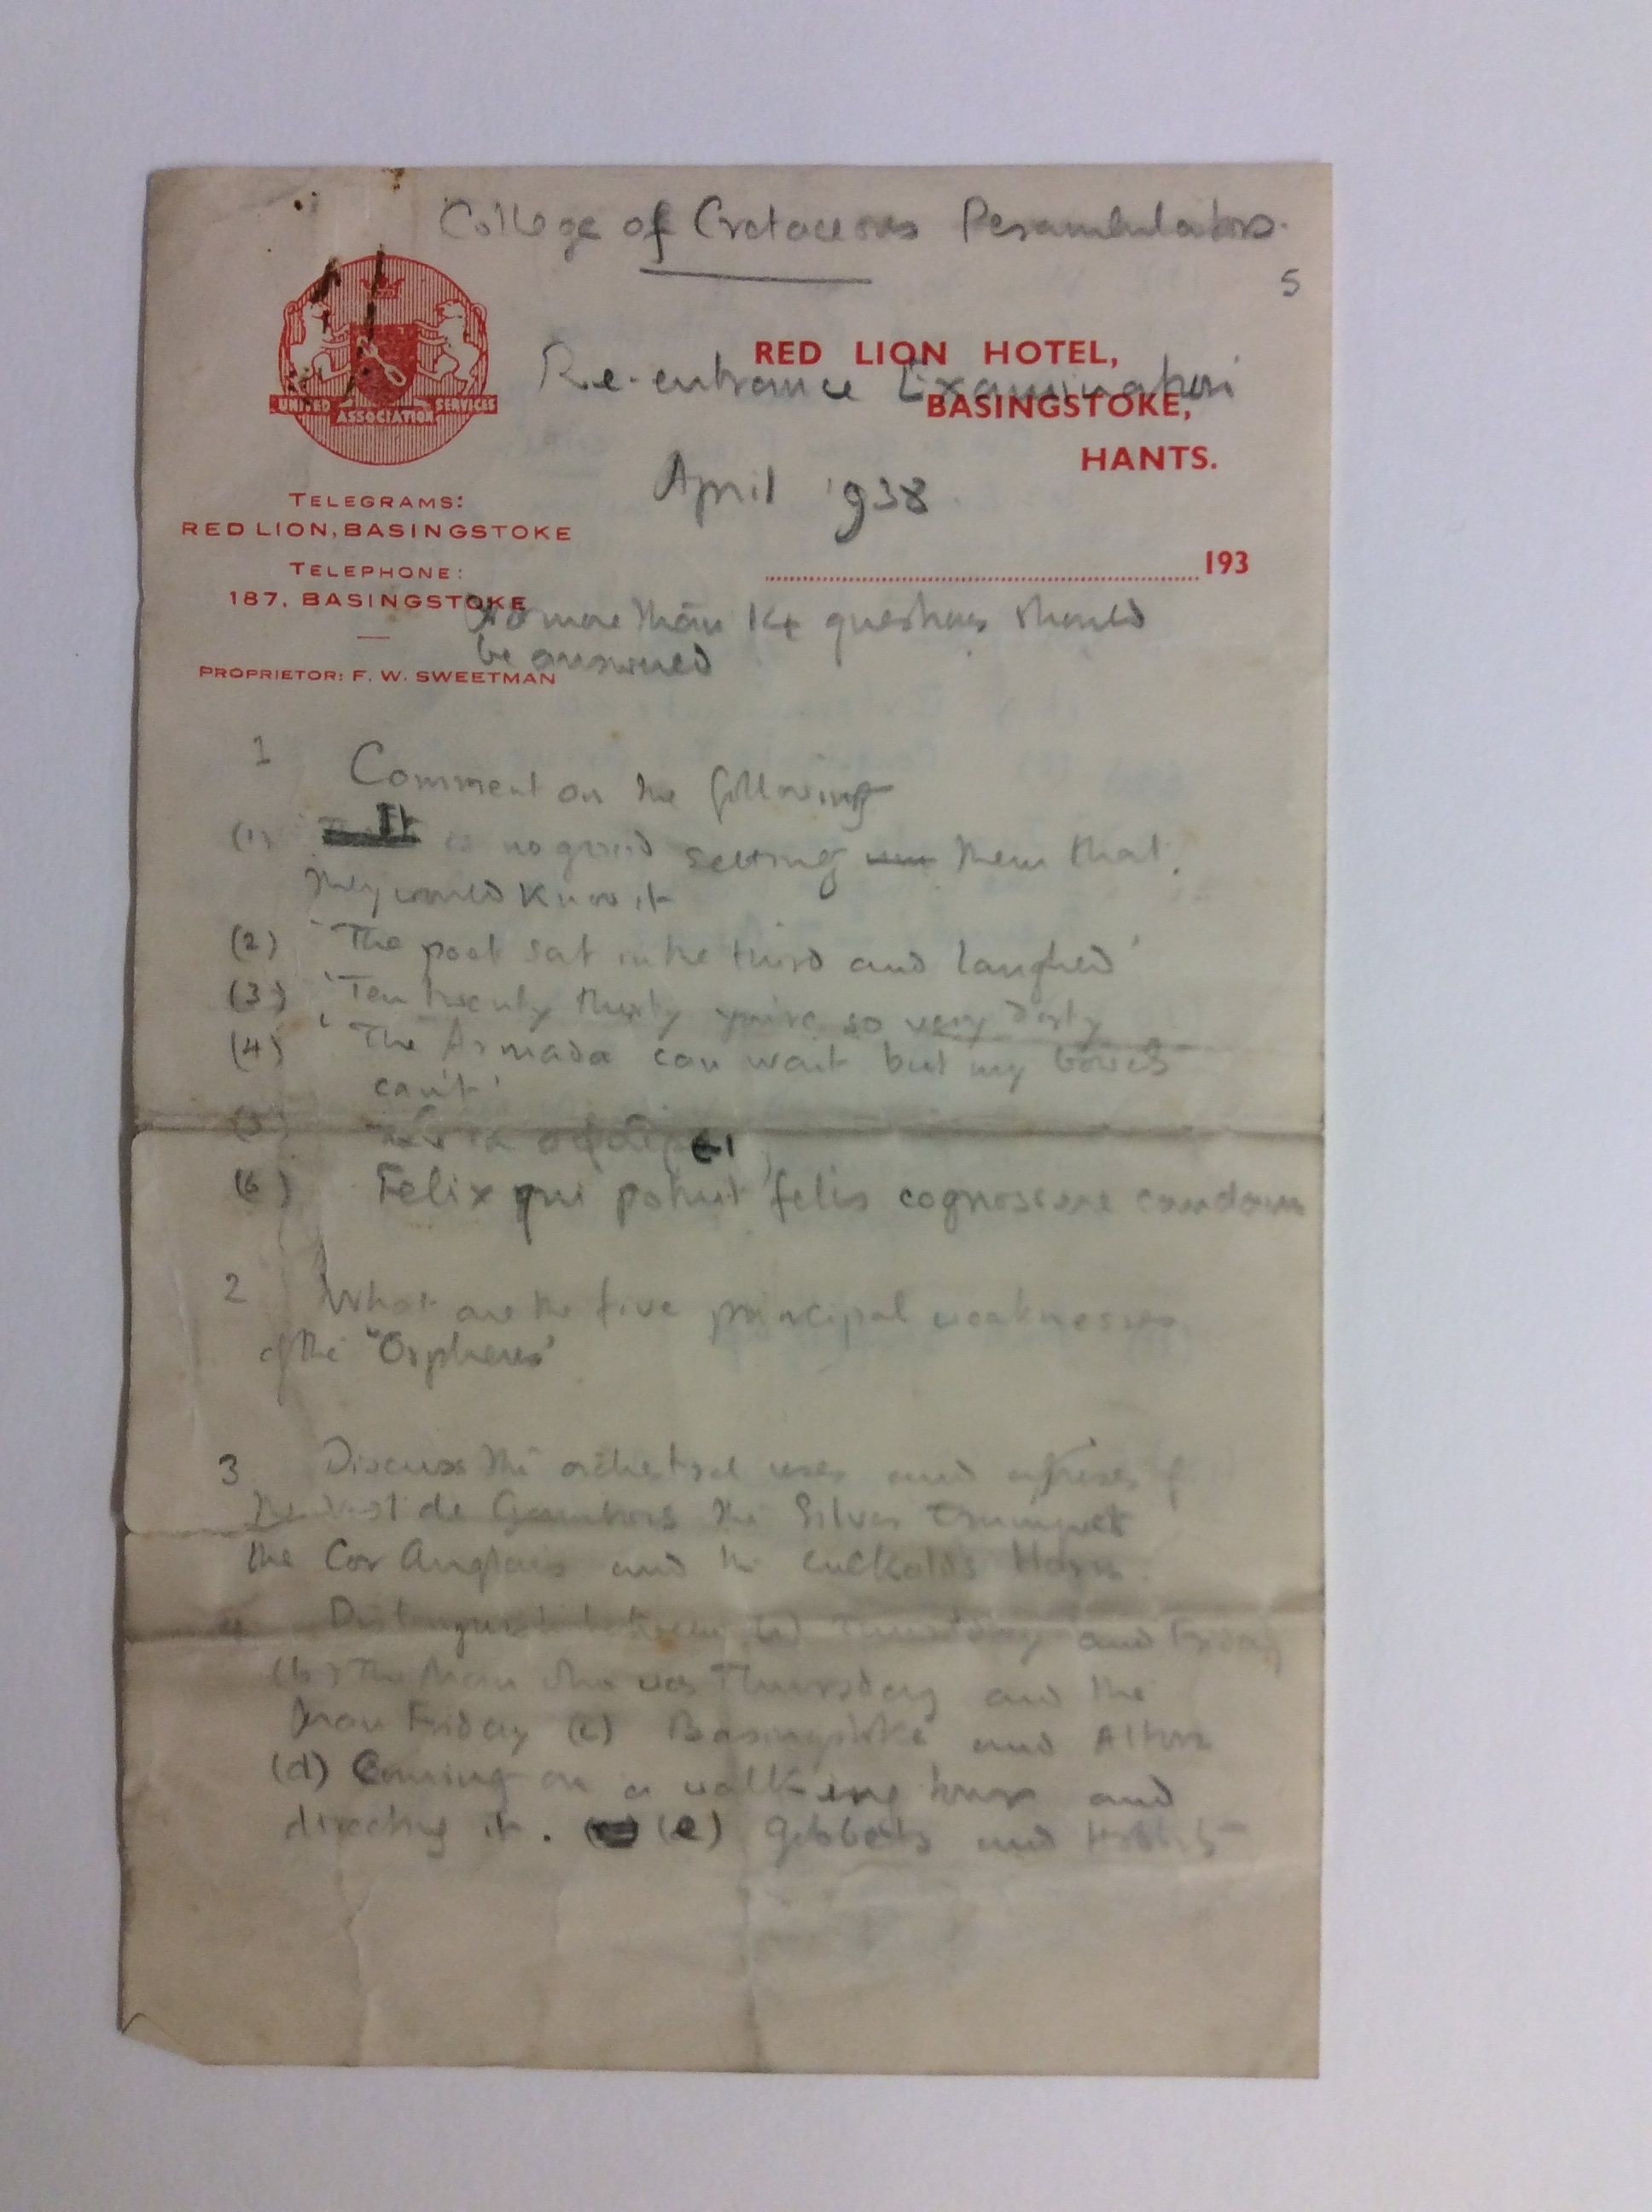 College of Cretaceous Perambulators.
5
RED LION HOTEL,
Re-entrance Examination
BASINGSTOKE,
HANTS.
UNITED SERVICES
ASSOCIATION
April 1938
TELEGRAMS:
RED LION, BASINGSTOKE
TELEPHONE:
187, BASINGSTOKE
193
No more than 14 questions should
be answered
PROPRIETOR: F. W. SWEETMAN
1 Comment on the following
(1) It is no good setting them that.
They would know it
(2) 'The poet sat in the third and laughed'
(3) 'Ten twenty thirty you're so very dirty
(4) 'The Armada can wait but my bowels
can't'
(5)
(6) Felix qui potuit felis cognoscere caudam
2 What are the five principal weaknesses
of the "Orpheus'
3 Discuss the orchestral uses and of
the de Gambois the Silver trumpet
the Cor Anglais and the cuckolds Horn.
4 Distinguish between (a) Thursday and Friday
(b) The Man who was Thursday and the
Man Friday (c) Basingstoke and Alton
(d) Coming on a walking tour and
directing it. (e) Gibbets and Hobbits